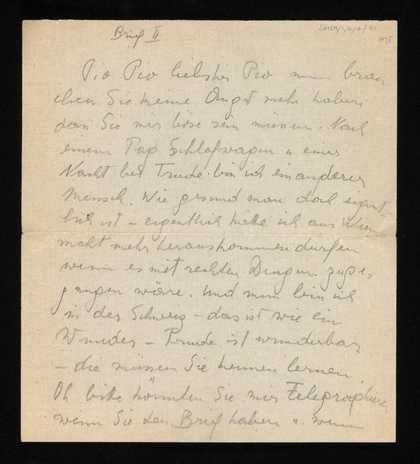 Brief II
Pio Peo liebster Peo nun brau
chen Sie keine Angst mehr haben
dass Sie mir böse sein müssen. Nach
einem Tag Schlafwagen u einer
Nacht bei Trude bin ich ein anderer
Mensch. Wie gesund man doch eigent
lich ist – eigentlich hätte ich aus Wien
nicht mehr herauskommen dürfen
wenn es mit rechten Dingen zuge
gangen wäre. Und nun bin ich
in der Schweiz – das ist wie ein
Wunder – Trude ist wunderbar
– die müssen Sie kennen lernen.
Oh bitte könnten Sie mir Telegraphieren
wenn Sie den Brief haben u. wenn